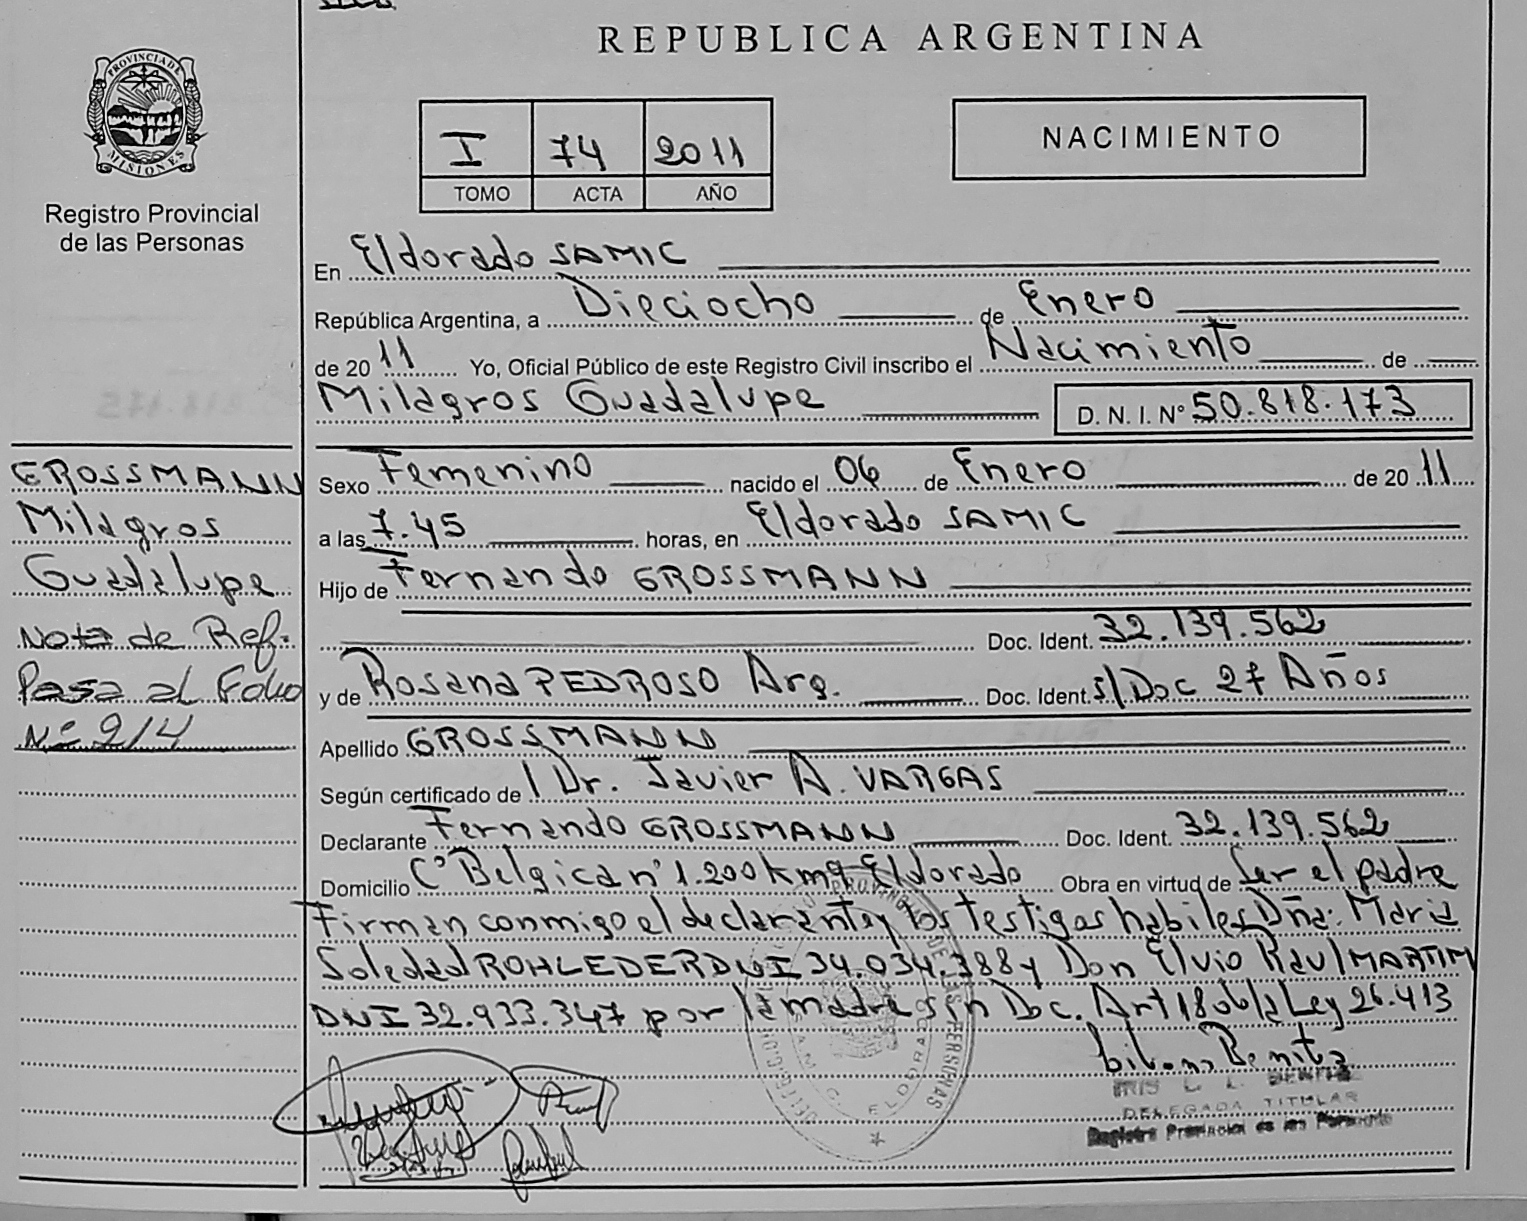 REPUBLICA ARGENTINA
PROVINCIA DE
MISIONES
Registro Provincial
de las Personas
I 74 2011
TOMO ACTA AÑO
NACIMIENTO
En Eldorado SAMIC
República Argentina, a Dieciocho de Enero
de 20 11 Yo, Oficial Público de este Registro Civil inscribo el Nacimiento de
Milagros Guadalupe D. N. I. N° 50.818.173
GROSSMANN
Milagros
Guadalupe
Nota de Ref:
Pasa al Folio
Nº 2/4
Sexo Femenino nacido el 06 de Enero de 20 11
a las 7.45 horas, en Eldorado SAMIC
Hijo de Fernando GROSSMANN
Doc. Ident. 32.139.562
y de Rosana PEDROSO Arg. Doc. Ident. s/Doc 27 Años
Apellido GROSSMANN
Según certificado de Dr. Javier A. VARGAS
Declarante Fernando GROSSMANN Doc. Ident. 32.139.562
Domicilio Cº Belgica nº 1.200 km 9 Eldorado Obra en virtud de Ser el padre
Firman conmigo el declarante y los Testigos habiles Dña: Maria
Soledad ROHLEDER DNI 34.034.388 y Don Elvio Raul MARTIM
DNI 32.933.347 por la madre sin Doc. Art 18 Ley 26.413
DELEGADA TITULAR
Registro Provincial de las Personas